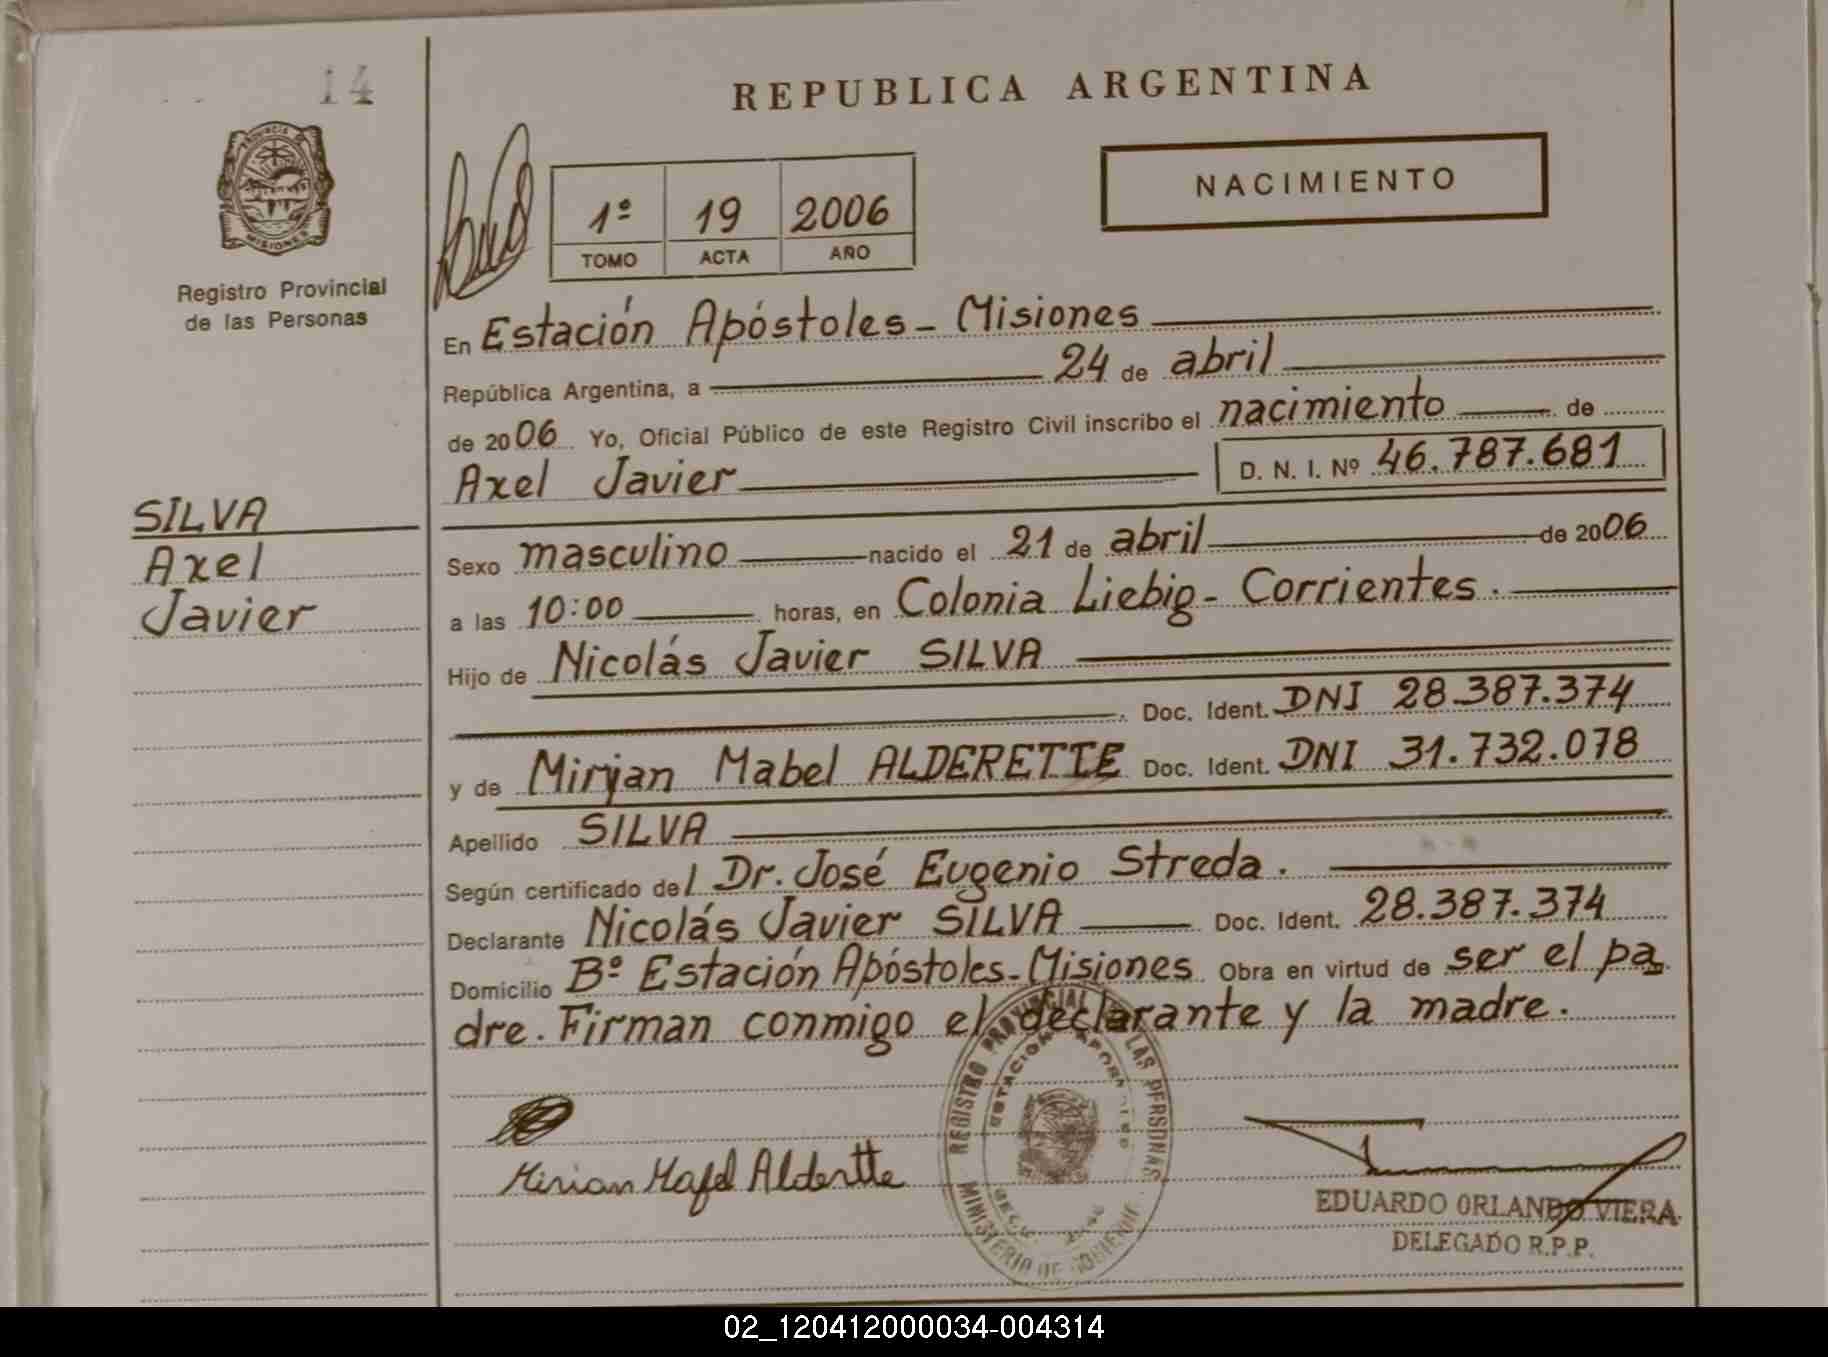 14
REPUBLICA ARGENTINA
PROVINCIA DE
MISIONES
Registro Provincial
de las Personas
1º 19 2006
TOMO ACTA AÑO
NACIMIENTO
En Estación Apóstoles - Misiones
República Argentina, a 24 de abril
de 2006 Yo, Oficial Público de este Registro Civil inscribo el nacimiento de
Axel Javier D. N. I. Nº 46.787.681
SILVA
Axel
Javier
Sexo masculino nacido el 21 de abril de 2006
a las 10:00 horas, en Colonia Liebig - Corrientes.
Hijo de Nicolás Javier SILVA
Doc. Ident. DNI 28.387.374
y de Mirian Mabel ALDERETTE Doc. Ident. DNI 31.732.078
Apellido SILVA
Según certificado del Dr. José Eugenio Streda.
Declarante Nicolás Javier SILVA Doc. Ident. 28.387.374
Domicilio Bº Estación Apóstoles - Misiones Obra en virtud de ser el pa
dre. Firman conmigo el declarante y la madre.
REGISTRO PROVINCIAL LAS PERSONAS
ESTACION
MINISTERIO DE GOBIERNO
Mirian Alderette
EDUARDO ORLANDO VIERA
DELEGADO R.P.P.
02_120412000034-004314